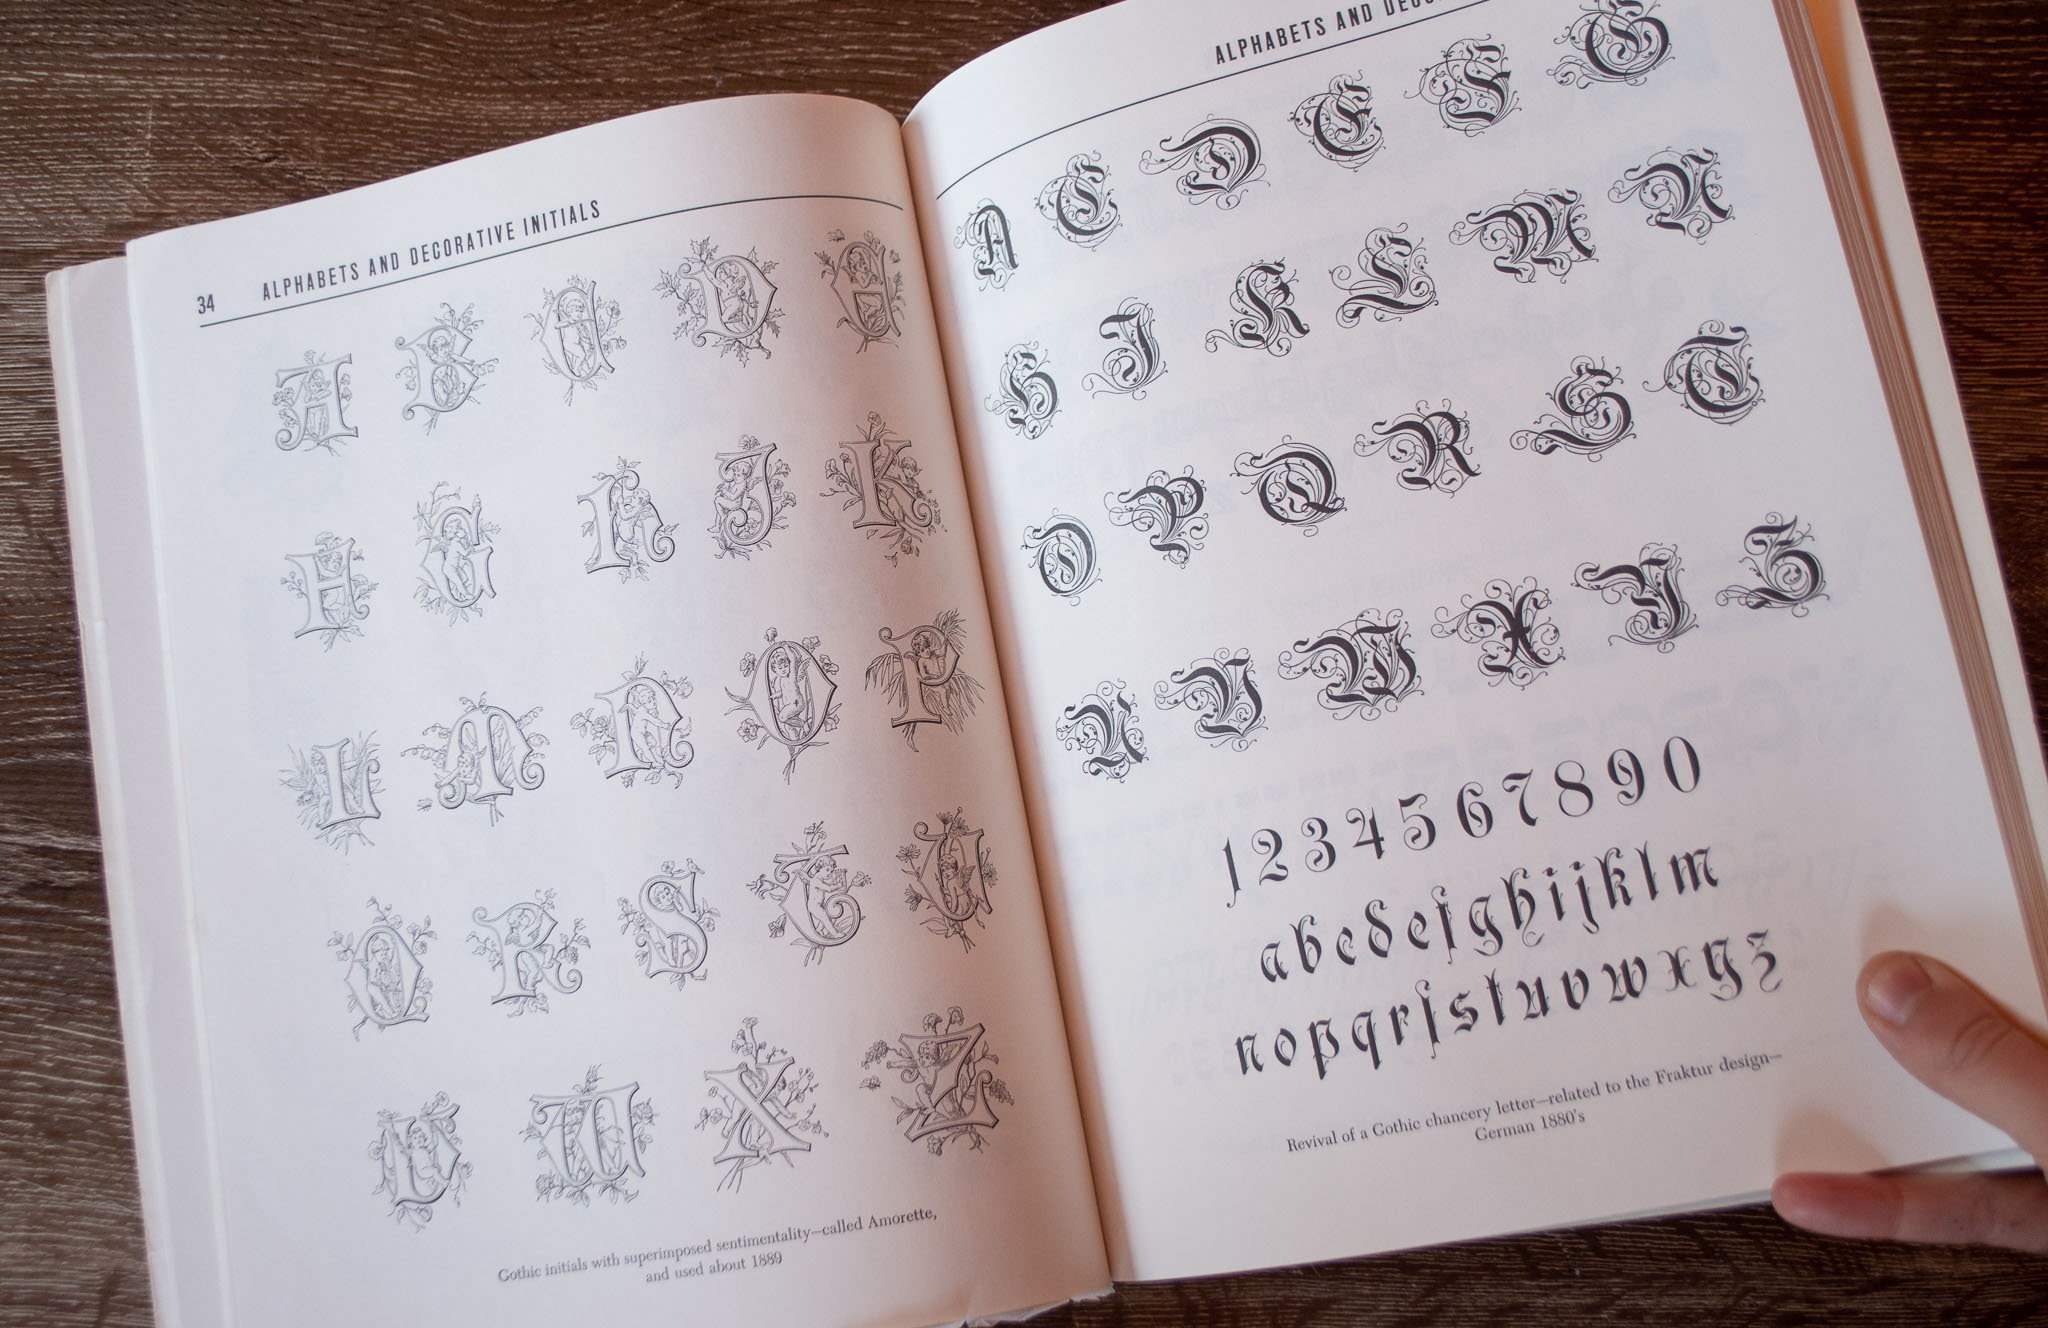 34 ALPHABETS AND DECORATIVE INITIALS
A B C D E
F G H J K
L M N O P
Q R S T U
V W X Z
Gothic initials with superimposed sentimentality—called Amorette,
and used about 1889
ALPHABETS AND
A C D E F G
H J K L M N
O P Q R S T
U V W X Y Z
1 2 3 4 5 6 7 8 9 0
a b c d e f g h i j k l m
n o p q r ſ s t u v w x y z
Revival of a Gothic chancery letter—related to the Fraktur design—
German 1880's